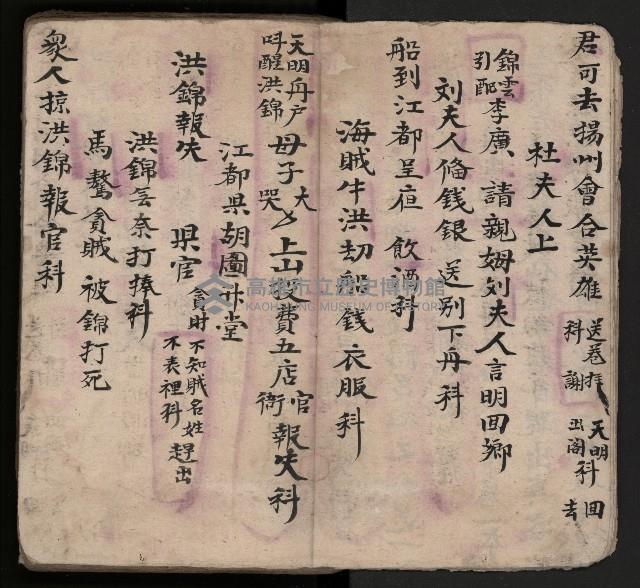 君可去揚州會合英雄 送盔拜謝科 天明出閣科 回去
杜夫人上
錦雲引配李廣 請親姆刘夫人言明回鄉
刘夫人俻錢銀 送别下舟科
船到江都呈疽 飲酒科
海賊牛洪刧船錢衣服科
天明舟户呌醒洪錦 母子大哭 上山投費五店 官衙報失科
江都県胡圖升堂
洪錦報失 県官 貪財不知賊名姓不表裡科 趕出
洪錦丢奈打捧科
馬騖貪賊 被錦打死
衆人掠洪錦報官科
高雄市立歷史博物館
KAOHSIUNG MUSEUM OF HISTORY